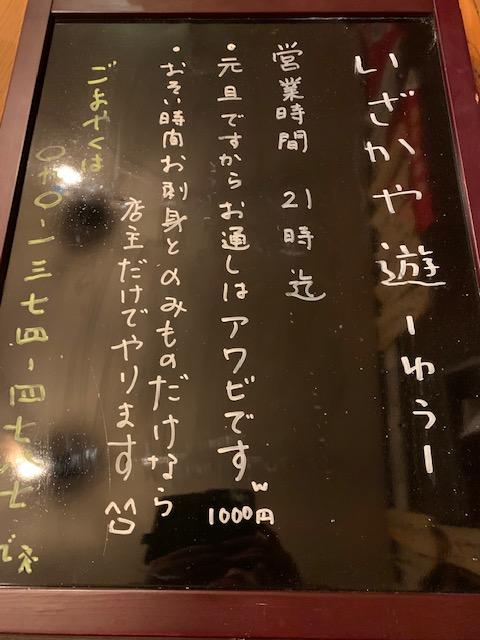 いざかや遊ーゆうー
営業時間 21時迄
・元旦ですからお通しはアワビですw
1000円
・おそい時間お刺身とのみものだけなら
店主だけでやります^^
ごよやくは